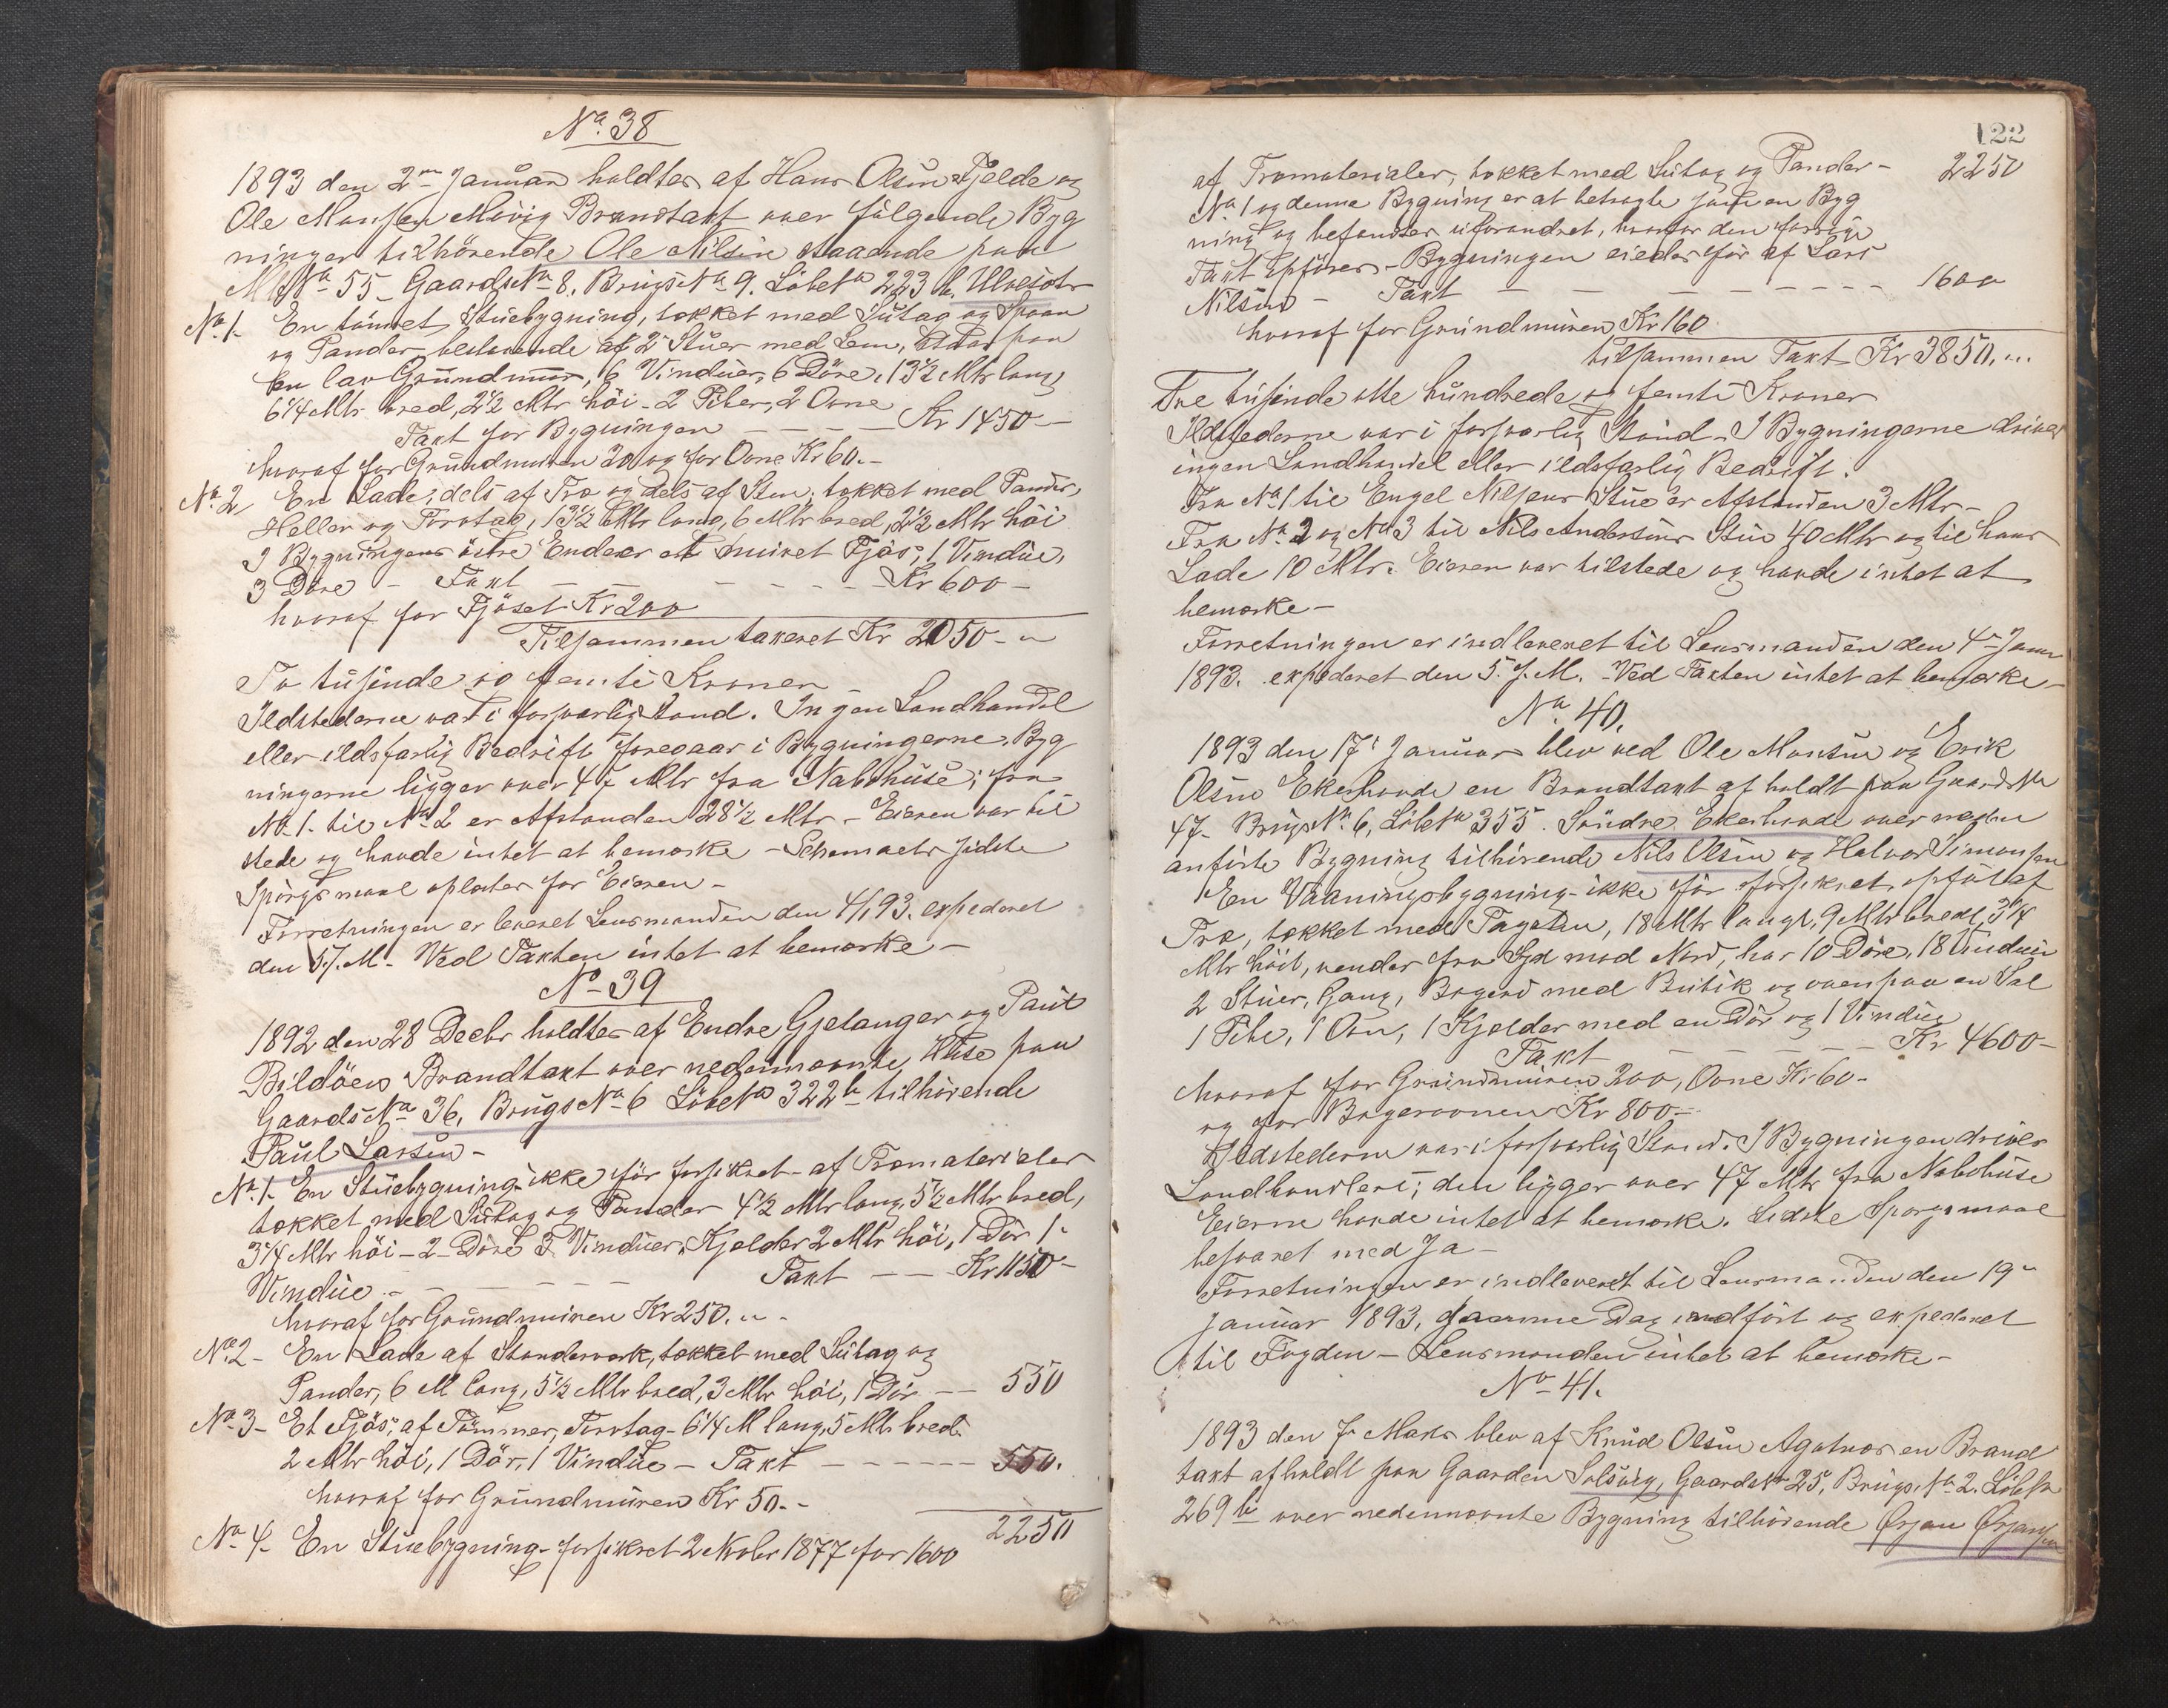 No. 38
1893 den 2den Januar holdtes af Hans Olsen Tjelde og
Ole Monsen Movig Brandtaxt over følgende Byg
ninger tilhörende Ole Nilsen staaende paa
M No 55 - Gaards No 8. Brugs No 9. Löbe No 223 b. Ulvesætr
No. 1. En tömret Stuebygning, tækket med Sutag og Spaan
og Pander bestaaende af 2 Stuer med Lem, staar paa
en lav Grundmur, 16 Vinduer, 6 Döre, 13½ Mtr lang
6¼ Mtr bred, 2½ Mtr höi - 2 Piber, 2 Ovne
Taxt for Bygningen - - - - Kr 1450 -
hvoraf for Grundmuren 20 og for Ovne Kr 60.-
No. 2 En Lade, dels af Træ og dels af Sten, tækket med Pander,
Heller og Torvtag, 13½ Mtr lang, 6 Mtr bred, 2½ Mtr höi
I Bygningens östre Ende er et muret Fjös, 1 Vindue,
3 Döre - Taxt - - - - - - Kr 600 -
hvoraf for Fjöset Kr 200
Tilsammen taxeret Kr 2050 - "
To tusinde og femti Kroner
Ildstederne var i forsvarlig Stand. Ingen Landhandel
eller ildsfarlig Bedrift foregaar i Bygningerne. Byg
ningerne ligger over 47 Mtr fra Nabohuse; fra
No. 1. til No. 2 er Afstanden 28½ Mtr - Eieren var til
stede og havde intet at bemærke - Schemaets sidste
Spörgsmaal oplæstes for Eieren -
Forretningen er leveret Lensmanden den 4/1 93. expederet
den 5. J. M. Ved Taxten intet at bemærke -
No 39
1892 den 28 Decbr holdtes af Endre Gjetanger og Paul
Bildöen Brandtaxt over nedennævnte Huse paa
Gaards No 36, Brugs No 6 Löbe No 322 b tilhörende
Paul Larsen -
No. 1. En Stuebygning ikke för forsikret - af Træmaterialer
tækket med Sutag og Pander 4½ Mtr lang, 5½ Mtr bred,
3¼ Mtr höi - 2 Döre 3 Vinduer, Kjelder 2 Mtr höi, 1 Dör 1
Vindue - - - - - Taxt - - Kr 1150 -
hvoraf for Grundmuren Kr 250. " -
No. 2 - En Lade af Standerværk, tækket med Sutag og
Pander, 6 M lang, 5½ Mtr bred, 3 Mtr höi, 1 Dör - - 550
No. 3 - Et Fjös, af Tömmer, Torvtag - 6¼ M lang, 5 Mtr bred
2 Mtr höi, 1 Dör, 1 Vindue - Taxt - - - - - - 550.
hvoraf for Grundmuren Kr 50. -
2250
No. 4. En Stuebygning - forsikret 2 Novbr 1877 for 1600
122
af Træmaterialer, tækket med Sutag og Pander - 2250
No. 1 og denne Bygning er at betragte som en Byg
ning og befandtes uforandret, hvorfor den forrige
Taxt opföres - Bygningen eiedes för af Lars
Nilsen - Taxt - - - - - - - - 1600
hvoraf for Grundmuren Kr 160
tilsammen Taxt Kr 3850. "
Tre tusinde otte hundrede og femti Kroner
Ildstederne var i forsvarlig Stand - I Bygningerne drives
ingen Landhandel eller ildsfarlig Bedrift.
Fra No 1 til Engel Nilsens Stue er Afstanden 3 Mtr -
Fra No. 2 og No 3 til Nils Andersens Stue 40 Mtr og til hans
Lade 10 Mtr. Eieren var tilstede og havde intet at
bemærke -
Forretningen er indleveret til Lensmanden den 4de Janr
1893. expederet den 5. J. M. - Ved Taxten intet at bemærke -
No. 40.
1893 den 17de Januar blev ved Ole Monsen og Erik
Olsen Ekerhovde en Brandtaxt afholdt paa Gaards No
47 - Brugs No. 6, Löbe No 355. Söndre Ekerhovde over neden
anförte Bygning tilhörende Nils Olsen og Halvor Simonsen
En Vaaningsbygning - ikke för forsikret, opfört af
Træ, tækket med Tagsten, 18 Mtr langt, 9 Mtr bredt, 3¼
Mtr höit, vender fra Syd mod Nord, har 10 Döre, 18 Vinduer
2 Stuer, Gang, Bageri med Butik og ovenpaa en Sal
1 Pibe, 1 Ovn, 1 Kjelder med en Dör og 1 Vindue
Taxt - - - - - - Kr 4600 -
hvoraf for Grundmuren 200, Ovne Kr 60 -
og for Bagerovnen Kr 800 -
Ildstederne var i forsvarlig Stand. I Bygningen drives
Landhandleri; den ligger over 47 Mtr fra Nabohuse
Eierne havde intet at bemærke. Sidste Spörgsmaal
besvaret med Ja -
Forretningen er indleveret til Lensmanden den 19de
Januar 1893, samme Dag indfört og expederet
til Fogden - Lensmanden intet at bemærke -
No 41.
1893 den 7de Marts blev af Knud Olsen Agotnes en Brand
taxt afholdt paa Gaarden Solsvig, Gaards No 25, Brugs No 2. Löbe No
269 b over nedennævnte Bygning tilhörende Örjan Örjansen